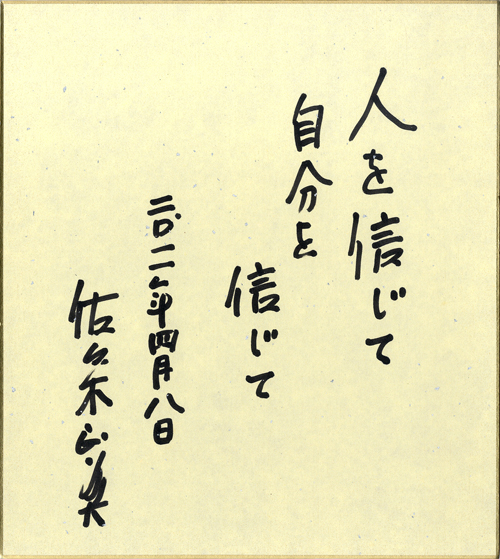 人を信じて
自分を
信じて
二〇一一年四月八日
佐々木正美